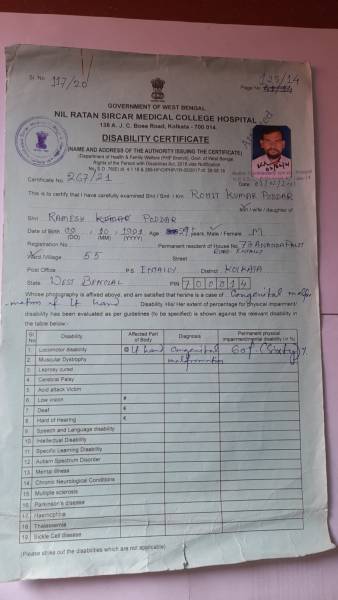 Sr. No. 117/20
125/14
Page No.
GOVERNMENT OF WEST BENGAL
NIL RATAN SIRCAR MEDICAL COLLEGE HOSPITAL
138 A. J. C. Bose Road, Kolkata - 700 014
DISABILITY CERTIFICATE
(NAME AND ADDRESS OF THE AUTHORITY ISSUING THE CERTIFICATE)
(Department of Health & Family Welfare (PHP Branch), Govt. of West Bengal
Rights of the Person with Disabilities Act, 2016 vide Notification
Certificate No. 267/21
This is to certify that I have carefully examined Shri / Smt. / Km. ROHIT KUMAR PODDAR
Son / wife / daughter of
Shri RAMESH KUMAR PODDAR
Date of Birth (DD) 10 (MM) (YYYY) Age 29 years, Male / Female M
Registration No. Permanent resident of House No.
Ward / Village 55 Street
Post Office P.S. ENTALLY District KOLKATA
State WEST BENGAL PIN 700014
Whose photograph is affixed above, and am satisfied that he/she is a case of Congenital malfor
mation of Lt hand Disability. His/ Her extent of percentage for physical impairment/
disability has been evaluated as per guidelines (to be specified) is shown against the relevant disability in
the table below:-
Sr. No Disability Affected Part of Body Diagnosis Permanent physical impairment/mental disability (in %)
1. Locomotor disability @ Lt hand Congenital malformation 60% (Sixty)
2. Muscular Dystrophy
3. Leprosy cured
4. Cerebral Palsy
5. Acid attack Victim
6. Low vision #
7. Deaf €
8. Hard of Hearing €
9. Speech and Language disability
10. Intellectual Disability
11. Specific Learning Disability
12. Autism Spectrum Disorder
13. Mental illness
14. Chronic Neurological Conditions
15. Multiple sclerosis
16. Parkinson's disease
17. Haemophilia
18. Thalassemia
19. Sickle Cell disease
(Please strike out the disabilities which are not applicable)